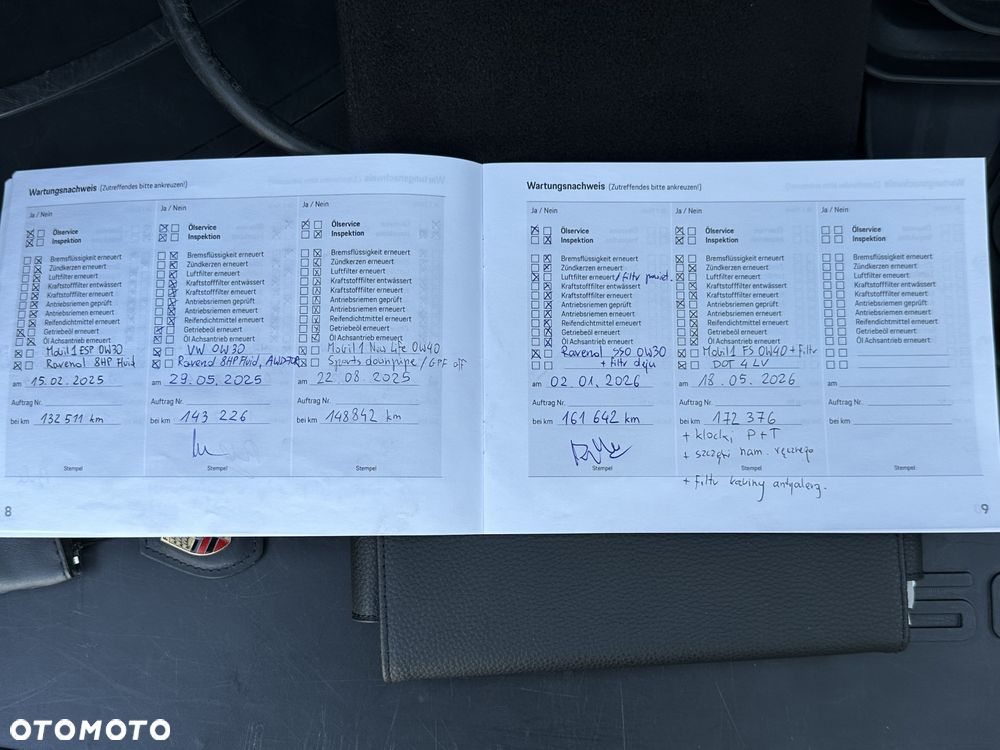 Wartungsnachweis (Zutreffendes bitte ankreuzen!)
Ja / Nein
Ölservice
Inspektion
Bremsflüssigkeit erneuert
Zündkerzen erneuert
Luftfilter erneuert
Kraftstofffilter entwässert
Kraftstofffilter erneuert
Antriebsriemen geprüft
Antriebsriemen erneuert
Reifendichtmittel erneuert
Getriebeöl erneuert
Öl Achsantrieb erneuert
Mobil 1 ESP 0W30
Ravenol 8HP Fluid
am 15.02.2025
Auftrag Nr.
bei km 132 511 km
Stempel
Ja / Nein
Ölservice
Inspektion
Bremsflüssigkeit erneuert
Zündkerzen erneuert
Luftfilter erneuert
Kraftstofffilter entwässert
Kraftstofffilter erneuert
Antriebsriemen geprüft
Antriebsriemen erneuert
Reifendichtmittel erneuert
Getriebeöl erneuert
Öl Achsantrieb erneuert
VW 0W30
Ravenol 8HP Fluid,
am 29.05.2025
Auftrag Nr.
bei km 143 226
Stempel
Ja / Nein
Ölservice
Inspektion
Bremsflüssigkeit erneuert
Zündkerzen erneuert
Luftfilter erneuert
Kraftstofffilter entwässert
Kraftstofffilter erneuert
Antriebsriemen geprüft
Antriebsriemen erneuert
Reifendichtmittel erneuert
Getriebeöl erneuert
Öl Achsantrieb erneuert
Mobil 1 New Life 0W40
Sports downpipe / GPF off
am 22.08.2025
Auftrag Nr.
bei km 148842 km
Stempel
8
Wartungsnachweis (Zutreffendes bitte ankreuzen!)
Ja / Nein
Ölservice
Inspektion
Bremsflüssigkeit erneuert
Zündkerzen erneuert
Luftfilter erneuert / filtr
Kraftstofffilter entwässert
Kraftstofffilter erneuert
Antriebsriemen geprüft
Antriebsriemen erneuert
Reifendichtmittel erneuert
Getriebeöl erneuert
Öl Achsantrieb erneuert
Ravenol SSO 0W30
+ filtr oleju
am 02.01.2026
Auftrag Nr.
bei km 161 642 km
Stempel
Ja / Nein
Ölservice
Inspektion
Bremsflüssigkeit erneuert
Zündkerzen erneuert
Luftfilter erneuert
Kraftstofffilter entwässert
Kraftstofffilter erneuert
Antriebsriemen geprüft
Antriebsriemen erneuert
Reifendichtmittel erneuert
Getriebeöl erneuert
Öl Achsantrieb erneuert
Mobil 1 FS 0W40 + filtr
DOT 4 LV
am 18.05.2026
Auftrag Nr.
bei km 172 376
+ klocki P+T
+ szczęki ham. ręcznego
Stempel
+ filtr kabiny antyalerg.
Ja / Nein
Ölservice
Inspektion
Bremsflüssigkeit erneuert
Zündkerzen erneuert
Luftfilter erneuert
Kraftstofffilter entwässert
Kraftstofffilter erneuert
Antriebsriemen geprüft
Antriebsriemen erneuert
Reifendichtmittel erneuert
Getriebeöl erneuert
Öl Achsantrieb erneuert
am
Auftrag Nr.
bei km
Stempel
9
OTOMOTO